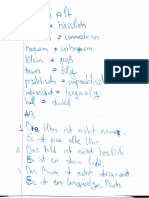 alt
≠ hässlich
≠ unmodern
bequem ≠ unbequem
klein ≠ groß
teuer ≠ billig
praktisch ≠ unpraktisch
interessant ≠ langweilig
hell ≠ dunkel
1 Die Uhr ist nicht neu
Es ist eine alte Uhr.
2 Das Bild ist nicht hässlich
Es ist ein Bild
3 Das Buch ist nicht interessant.
Es ist ein langweiliges Buch